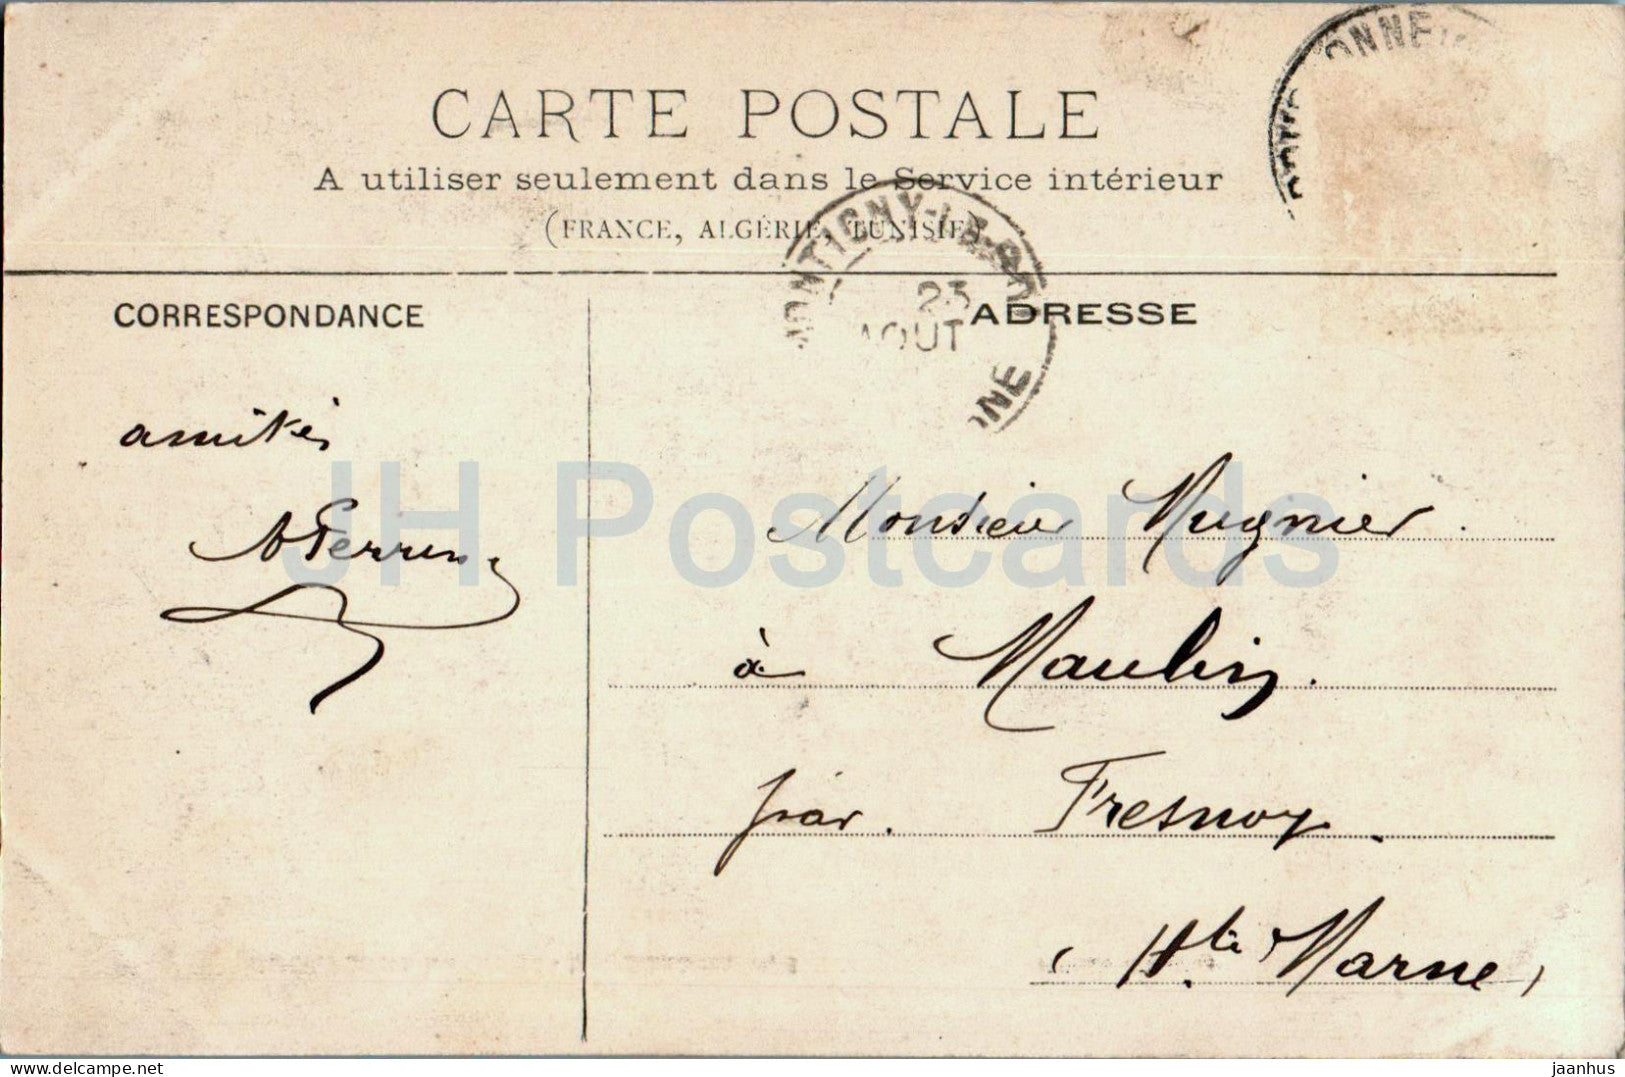 CARTE POSTALE
A utiliser seulement dans le Service intérieur
(FRANCE, ALGÉRIE, TUNISIE)
ONNE
MONTIGNY-LA-
23
AOUT
CORRESPONDANCE
ADRESSE
amitiés
Perrin
Monsieur Mugnier.
à Maulin.
par. Fresnoy.
(Hte Marne)
JH Postcards
delcampe.net
jaanhus